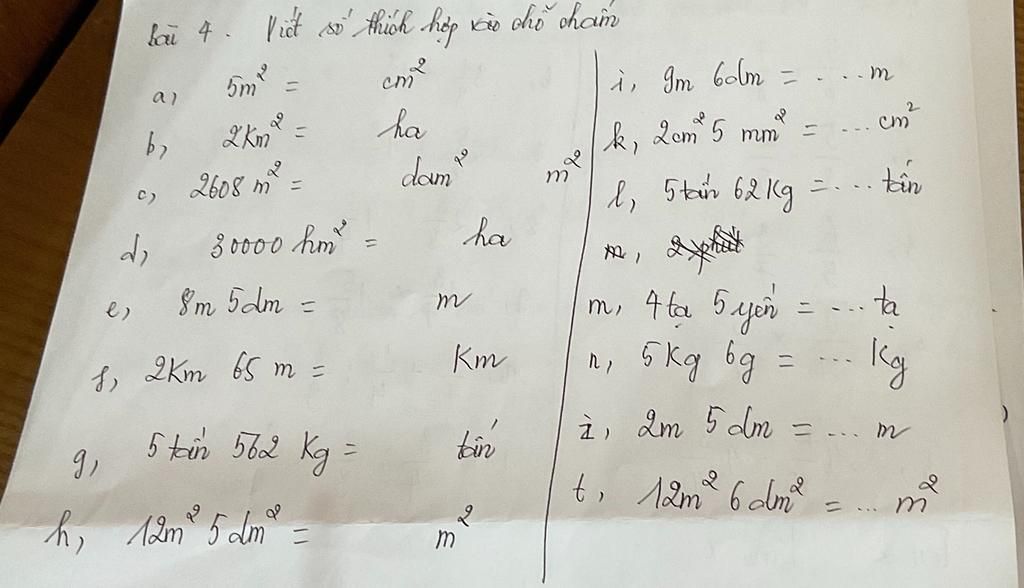 Bài 4. Viết số thích hợp vào chỗ chấm
a, 5m² = cm²
b, 2km² = ha
c, 2608 m² = dam² m²
d, 30000 hm² = ha
e, 8m 5dm = m
f, 2Km 65 m = Km
g, 5 tấn 562 Kg = tấn
h, 12m² 5dm² = m²
i, 9m 6dm = ... m
k, 2cm² 5 mm² = ... cm²
l, 5 tấn 62 Kg = ... tấn
m, 4 tạ 5 yến = ... tạ
n, 5 Kg 6g = ... Kg
i, 2m 5dm = ... m
t, 12m² 6dm² = ... m²